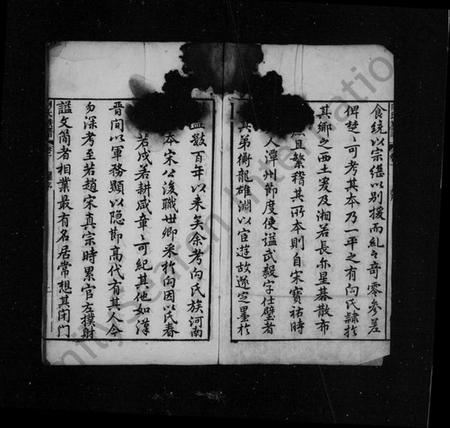 食統以宗繼以別援而亂々奇零參差
俾楚々可考其本乃一平之有向氏隸於
其鄉之西土爰及湘若長亦星春散布
且繁稽其所本則自宋寶祐時
人潭州節度使諡武毅字仕璧者
其弟衡龍雄淵以宦遊故遂定墨於
數百年以来矣余考向氏族河南
本宋公後職世卿采於向因以氏春
若戍若耕咸章々可紀其他如漢
晉間以軍務顯以隐節高代有其人今
勿深考至若趙宋真宗時累官左撲射
諡文簡者相業最有名居常想其閉門